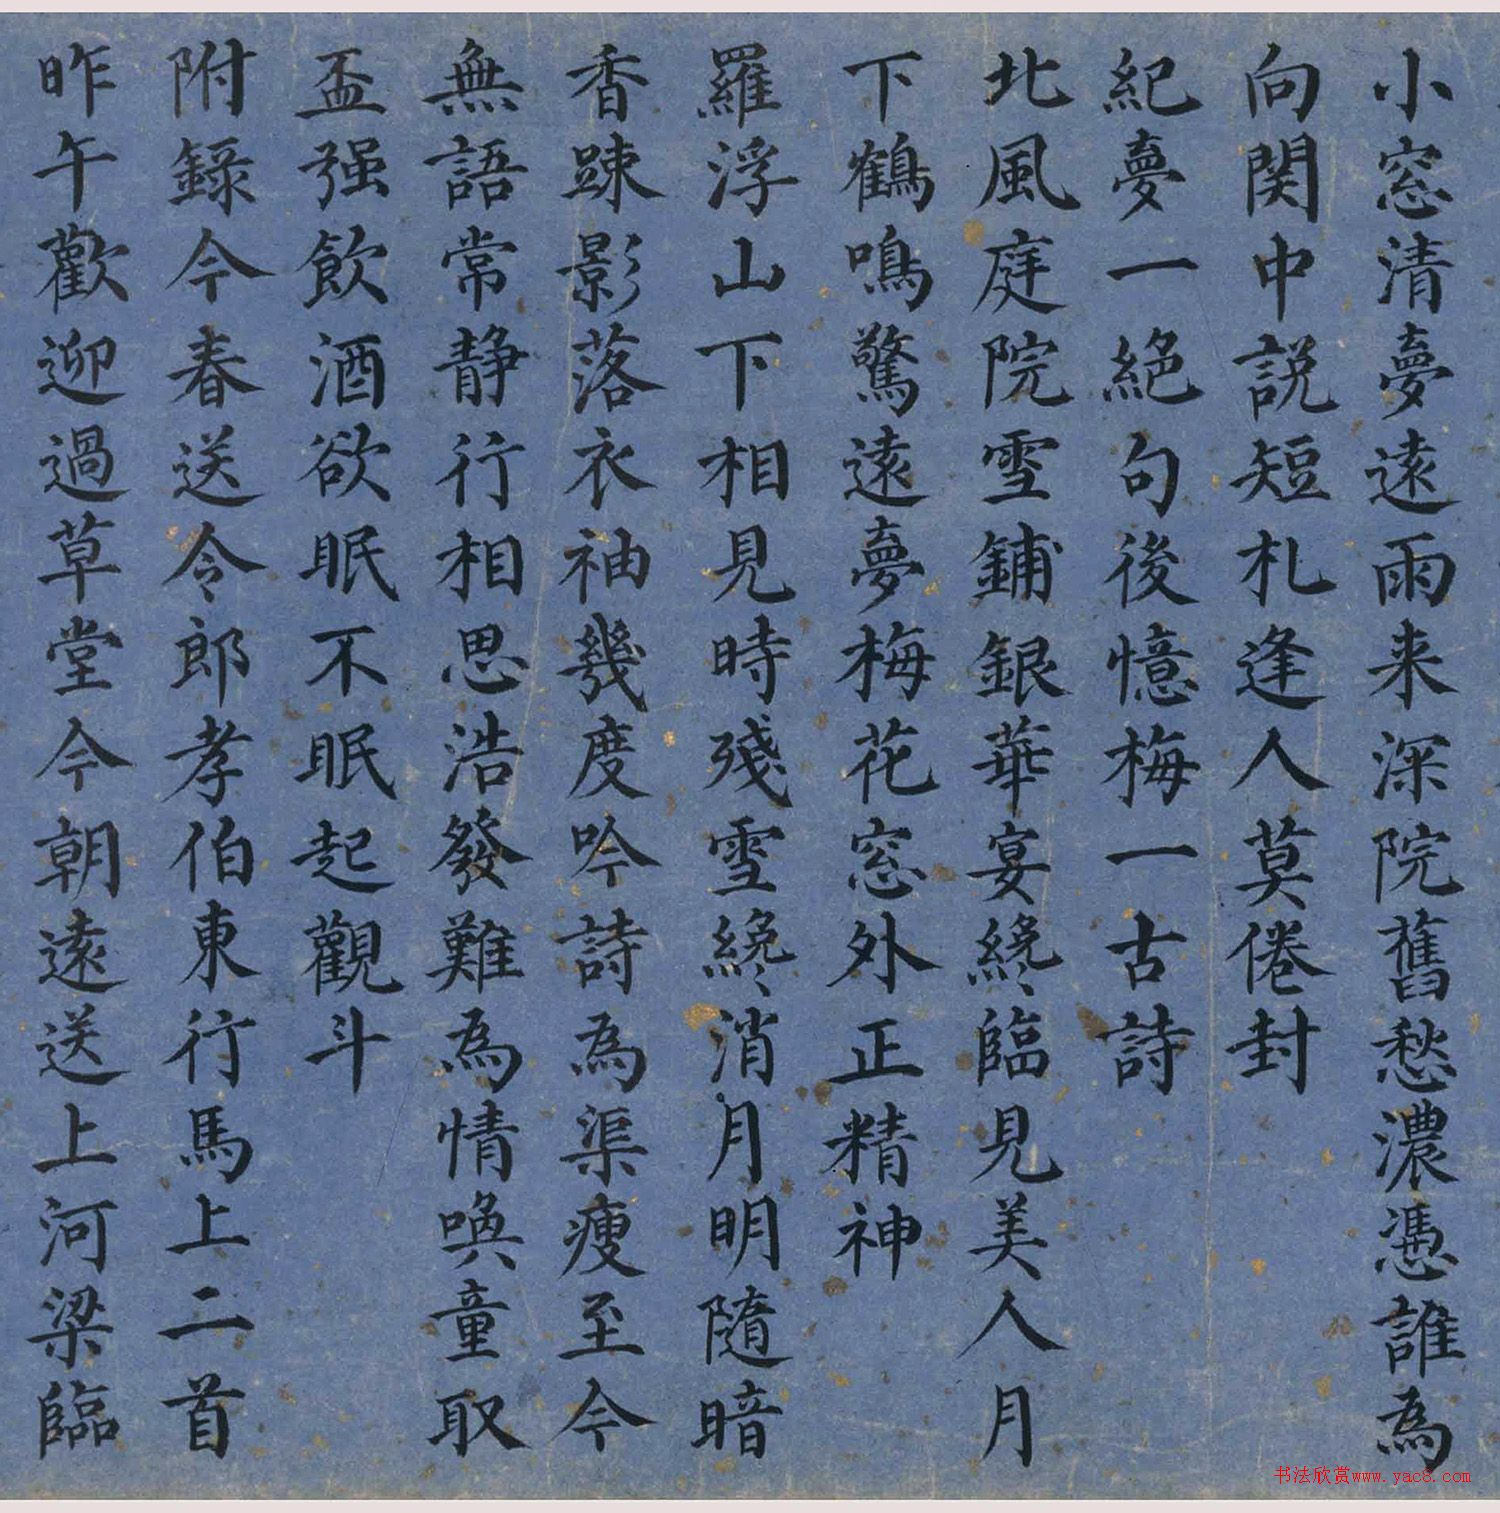 小窓清夢遠雨来深院舊愁濃憑誰為
向関中説短札逢人莫倦封
紀夢一絶句後憶梅一古詩
北風庭院雪鋪銀華宴纔臨見美人月
下鶴鳴驚遠夢梅花窓外正精神
羅浮山下相見時残雪纔消月明随暗
香踈影落衣袖幾度吟詩為渠痩至今
無語常静行相思浩發難為情喚童取
盃强飲酒欲眠不眠起觀斗
附録今春送令郎孝伯東行馬上二首
昨午歡迎過草堂今朝遠送上河梁臨
书法欣赏www.yac8.com